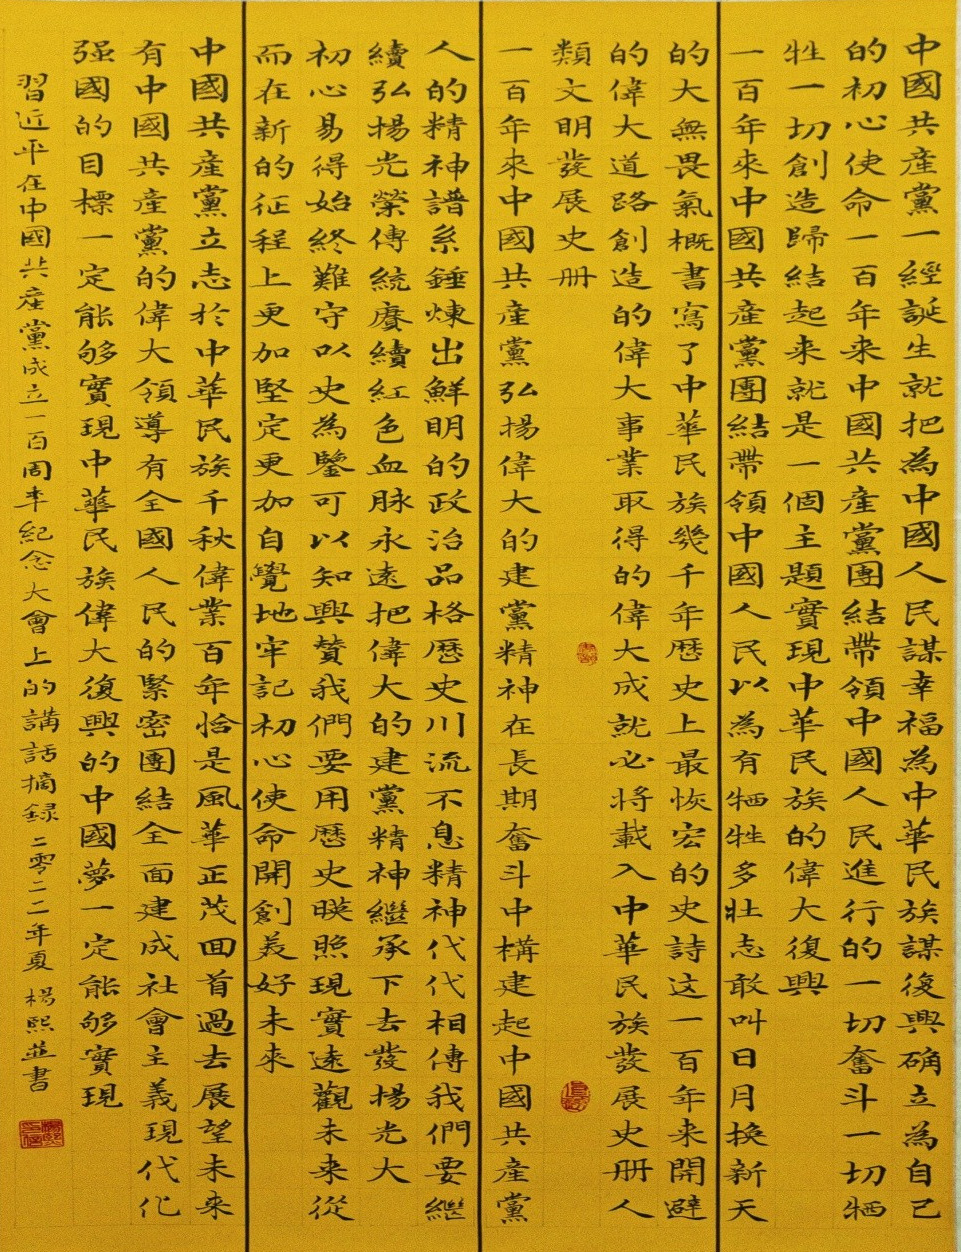 中國共産黨一經誕生就把為中國人民謀幸福為中華民族謀復興确立為自己
的初心使命一百年来中國共産黨團結帶領中國人民進行的一切奮斗一切牺
牲一切創造歸結起来就是一個主題實現中華民族的偉大復興
一百年來中國共産黨團結帶領中國人民以為有牺牲多壯志敢叫日月换新天
的大無畏氣概書寫了中華民族幾千年歷史上最恢宏的史詩这一百年来開避
的偉大道路創造的偉大事業取得的偉大成就必将載入中華民族發展史册人
類文明發展史册
一百年來中國共産黨弘揚偉大的建黨精神在長期奮斗中構建起中國共産黨
人的精神譜系錘煉出鮮明的政治品格歷史川流不息精神代代相傳我們要繼
續弘揚光榮傳統賡續紅色血脉永遠把偉大的建黨精神繼承下去發揚光大
初心易得始終難守以史為鑒可以知興贊我們要用歷史暎照現實遠觀未来從
而在新的征程上更加堅定更加自覺地牢記初心使命開創美好未來
中國共産黨立志於中華民族千秋偉業百年恰是風華正茂回首過去展望未来
有中國共産黨的偉大領導有全國人民的緊密團結全面建成社會主義現代化
强國的目標一定能够實現中華民族偉大復興的中國夢一定能够實現
習近平在中國共産黨成立一百周年紀念大會上的講話摘録二零二二年夏楊熙並書